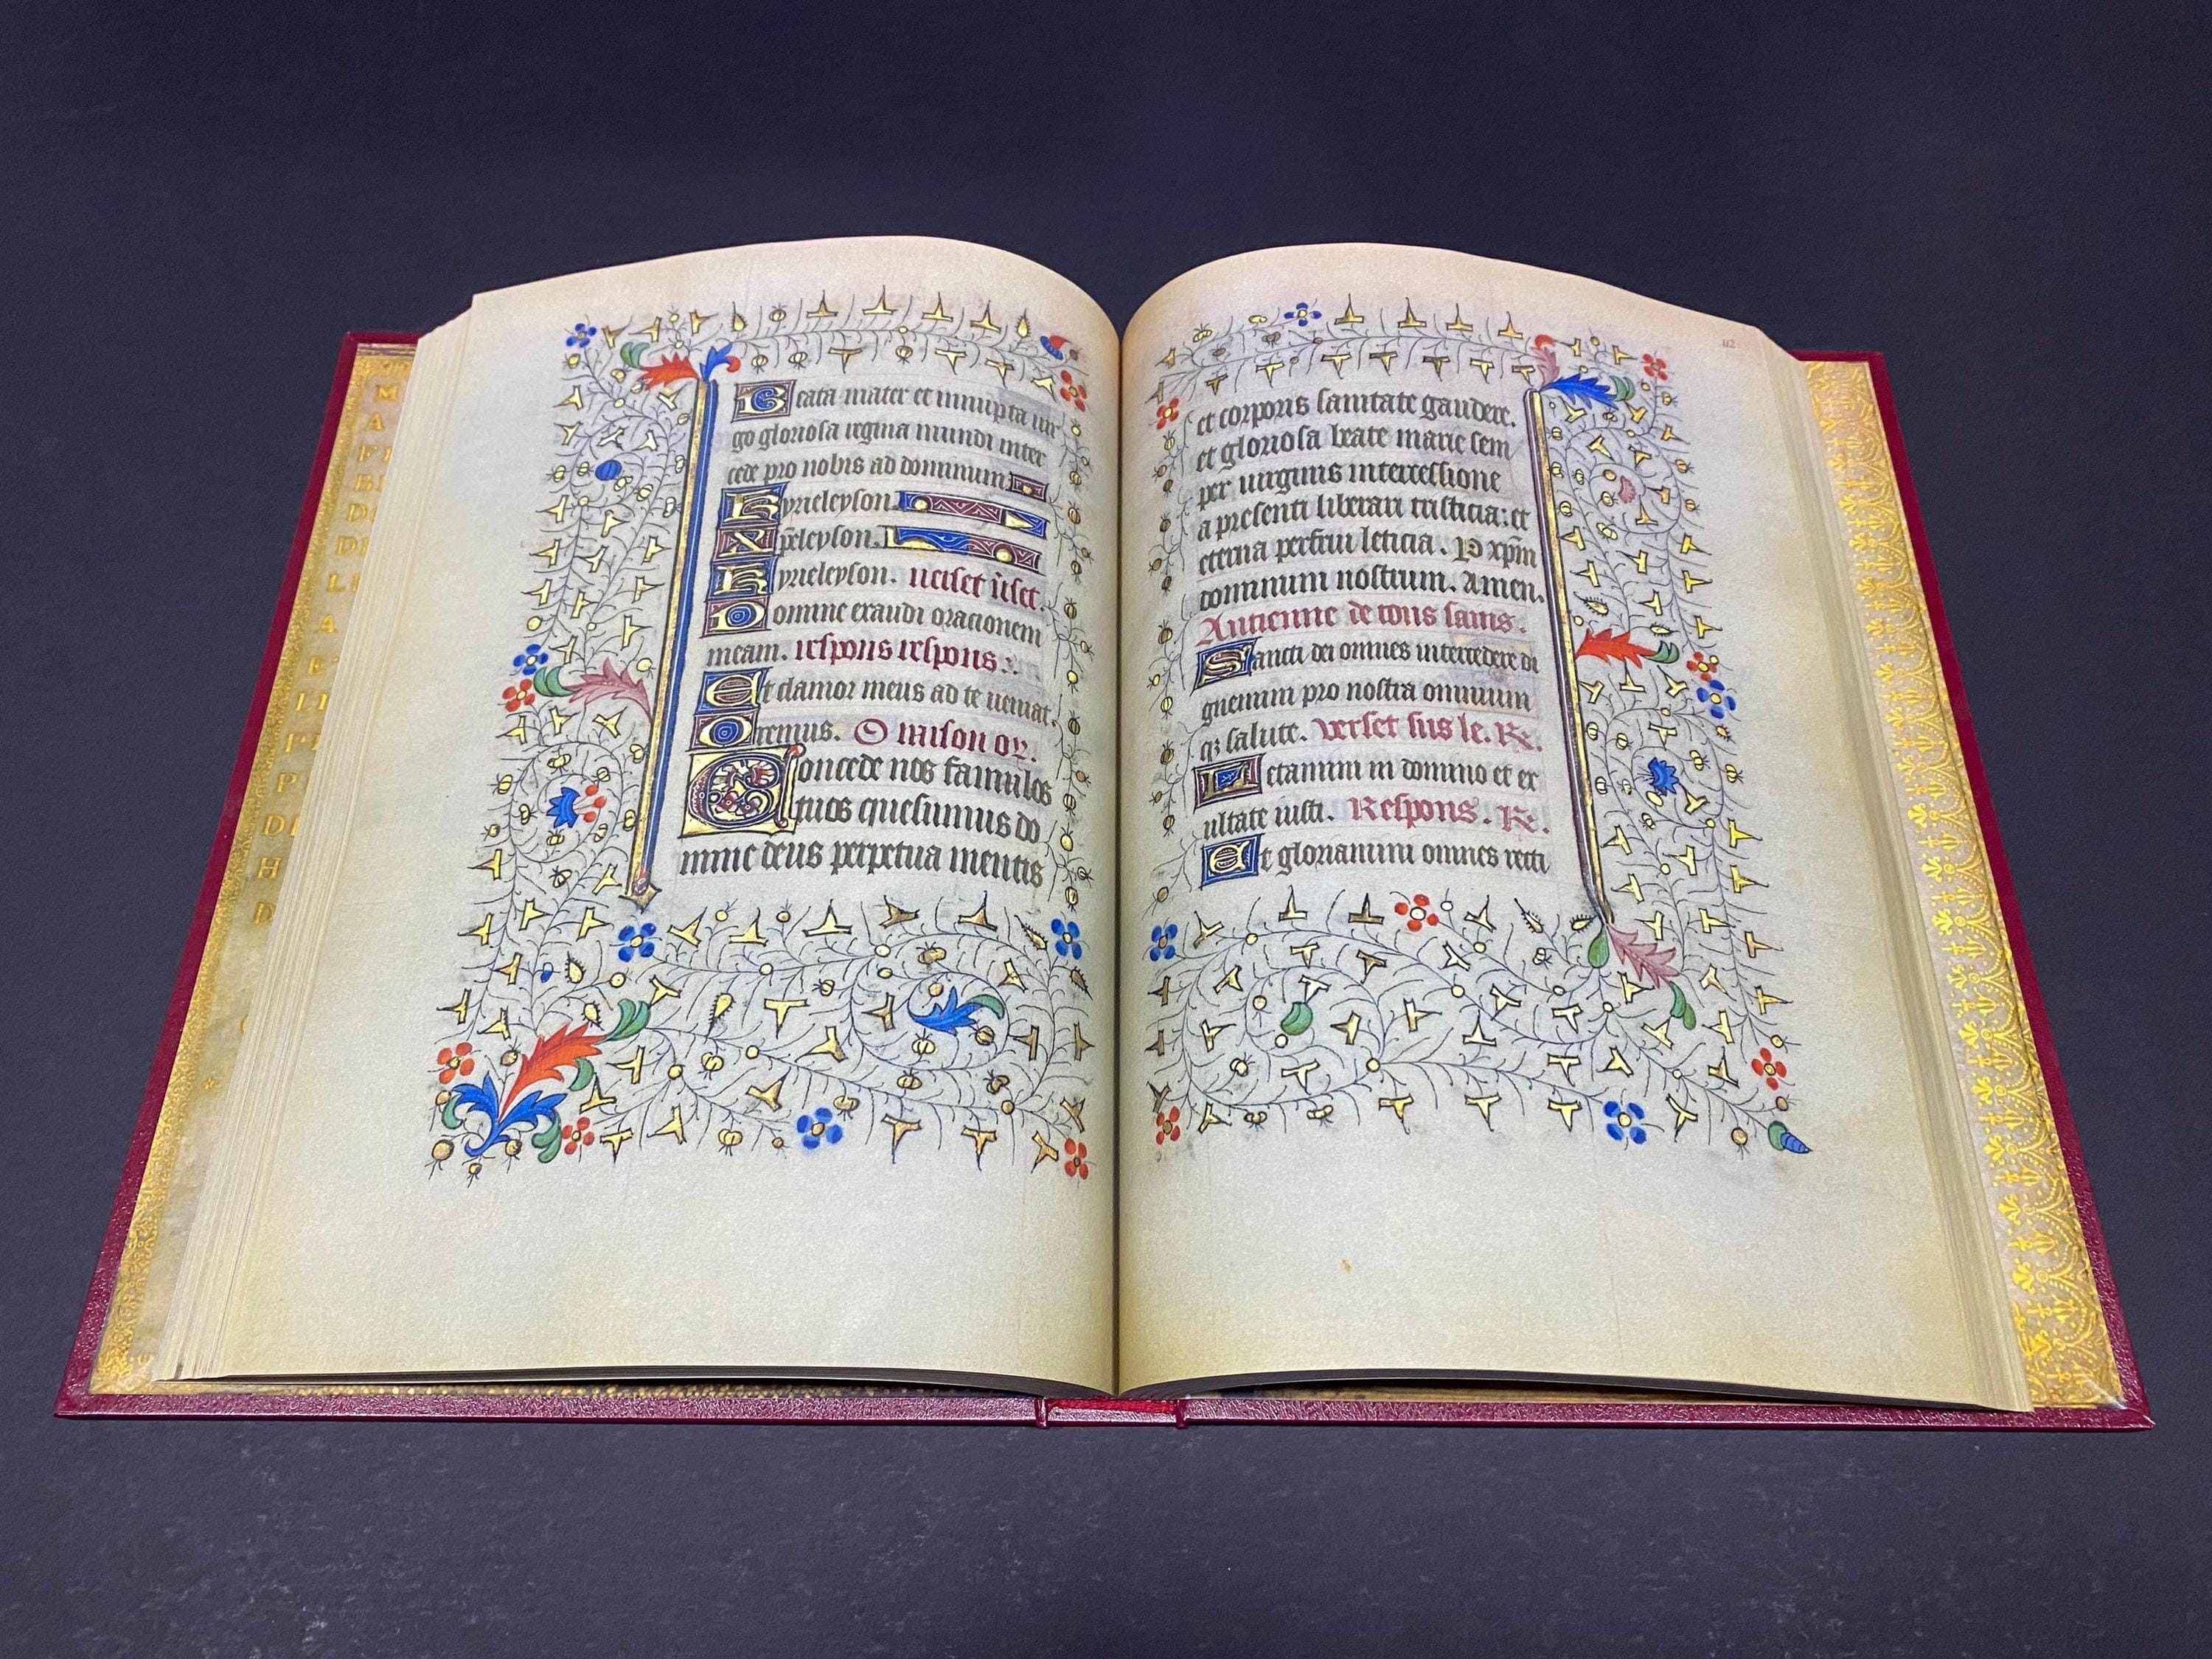 Beata mater et innupta uir
go gloriosa regina mundi inter
cede pro nobis ad dominum.
kyrieleyson.
Xp̄eleyson.
kyrieleyson. uerset ūset.
Domine exaudi orationem
meam. respons respons.
Et clamor meus ad te ueniat.
Oremus. Oraison or.
Concede nos famulos
tuos quesumus do
mine deus perpetua mentis
112
et corporis sanitate gaudere.
et gloriosa beate marie sem
per uirginis intercessione
a presenti liberari tristicia: et
eterna perfrui leticia. P xp̄m
dominum nostrum. Amen.
Antienne de tous sains.
Sancti dei omnes intercedere di
gnemini pro nostra omnium
qz salute. verset sus le. Re.
Letamini in domino et ex
ultate iusti. Respons. Re.
Et gloriamini omnes recti